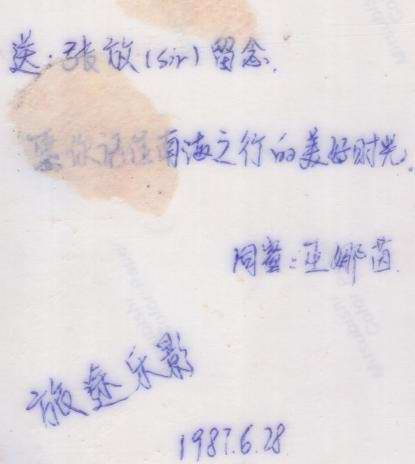 送：张放(sir)留念.
愿你记住南海之行的美好时光.
同窗：巫娜茵
旅途乐影
1987.6.28